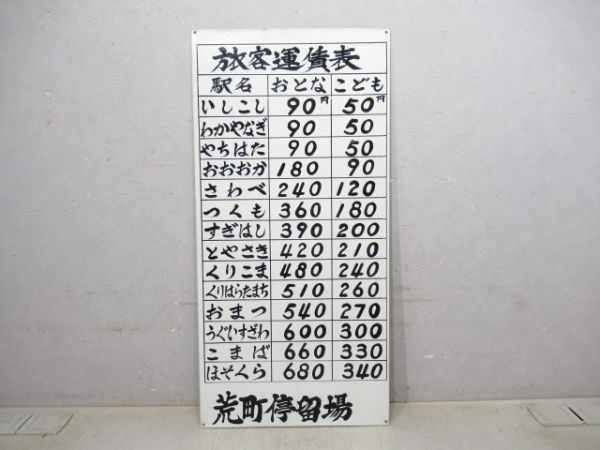 旅客運賃表
駅名 おとな こども
いしこし 90円 50円
わかやなぎ 90 50
やちはた 90 50
おおおか 180 90
さわべ 240 120
つくも 360 180
すぎはし 390 200
とやさき 420 210
くりこま 480 240
くりはらたまち 510 260
おまつ 540 270
うぐいすざわ 600 300
こまば 660 330
ほそくら 680 340
荒町停留場